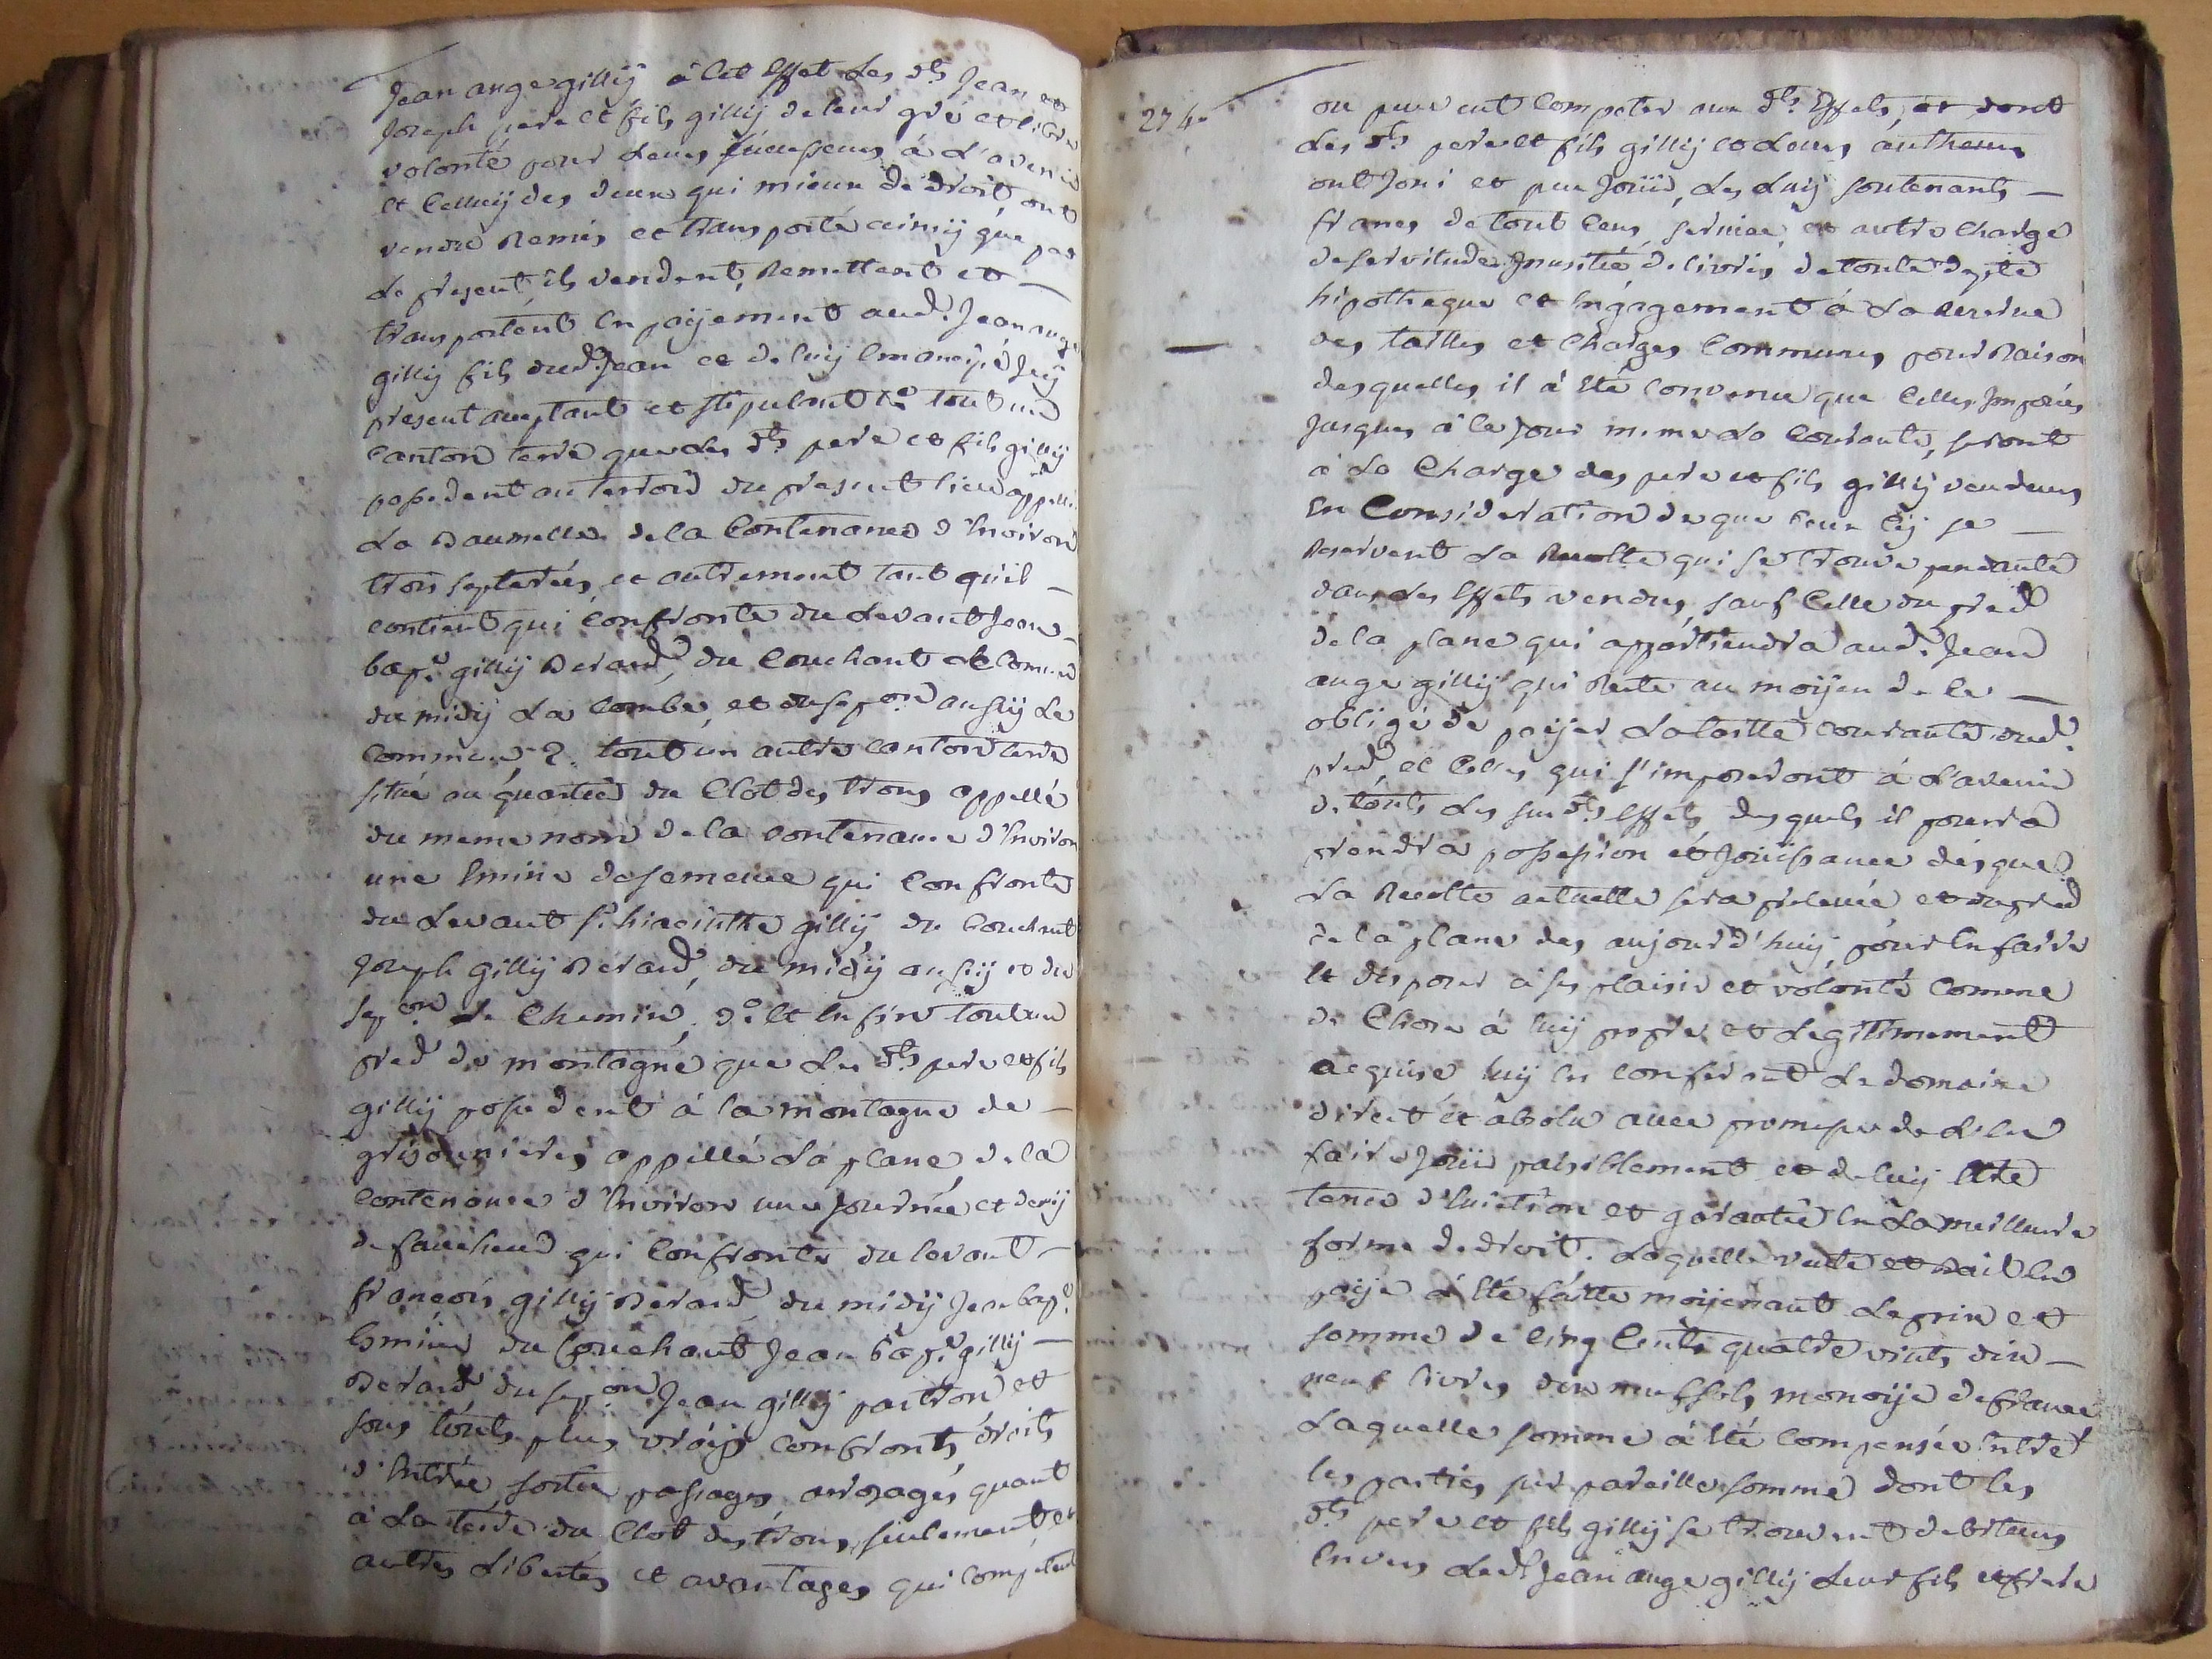 Jean ange gillÿ à Cet Effet Les dts Jean et
Joseph pere et fils gillÿ de leur gré et libre
volonté pour Leurs successeurs à L'avenir
et Celluÿ des deux qui mieux de droit, ont
vendu Remis et transporté ainsÿ que par
Le present, ils vendent, Remettent et
transportent En païement aud. Jean ange
gillÿ fils dud. Jean et de luÿ Emancipé Icÿ
present acceptant et stipulant 1° tout un
Canton terre que Les dts pere et fils gillÿ
possedent au terroir du present lieu appellé
La Baumelle de la Contenance d'Environ
trois septerées, et autrement tant qu'il
contient qui Confronte du Levant Jean
bapt. gillÿ Berard, du Couchant Le Comun
du midÿ La Combe, et du sepon aussÿ Le
Commun, 2. tout un autre Canton terre
situé au quartier du Clot des trons appellé
du meme nom de la Contenance d'Environ
une Emine de semence qui Confronte
du Levant Sr hiacinthe gillÿ du Couchant
Joseph gillÿ Berard, du midÿ aussÿ et du
sepon Le Chemin, 3° Et En fin tout un
pred de montagne que Les dts pere et fils
gillÿ possedent à la montagne de
appellé La plane de la
Contenance d'Environ une Journée et demÿ
de faucheur qui Confronte du levant
françois gillÿ Berard du midÿ Jean bapt.
du Couchant Jean bapt. gillÿ
Berard du sepon Jean gillÿ et
sous touts plus vraÿs Confronts, droits
d'Entrée, sortie passages, arrosages quant
à La terre du Clot des trons, seulement et
autres Libertés et avantages qui Competent
274.
ou peuvent Competer aux dts Effets, et dont
Les dts pere et fils gillÿ et Leurs autheurs
ont Joui et peu Jouïr, Les Luÿ soutenants
francs de tout Cens, service, et autre Charge
de servitude Inusitée delivrés de toute depte
hipotheque et Engagement à La Reserve
des tailles et Charges Communes, pour Raison
desquelles il à Eté Convenu que Celles Imposées
Jusques à Ce Jour meme La Courante, seront
à La Charge des pere et fils gillÿ vendeurs
En Consideration de que Ceux Cÿ se
Reservent La Recolte qui se trouve pendante
dans Les Effets vendus, sauf Celle du pred
de la plane qui appartiendra aud. Jean
ange gillÿ qui Reste au moÿen de Ce
obligé de païer La taille Courante dud.
pred, et Celles qui s'imposeront à L'avenir
de touts Les susdts Effets, desquels il pourra
prendra possession et Jouissance des que
La Recolte actuelle sera prelevée et du pred
de la plane des aujourd'huÿ, pour En faire
Et disposer à ses plaisir et volonté Comme
de Chose à luÿ propre et Legittimement
acquise luÿ En Conferant Le domaine
direct et absolu avec promesse de L'En
faire Jouïr paisiblement et de luÿ Etre
tenus d'Eviction et garantie En La meilleure
forme de droit. Laquelle vente
à Eté faitte moÿenant Le prix et
somme de Cinq Cents quatre vints dix
neuf livres dix neuf sols, monoÿe de france
Laquelle somme à Eté Compensée Entre
les parties sur pareille somme dont les
dts pere et fils gillÿ se trouvent debiteurs
Envers Ledt Jean ange gillÿ Leur fils et frere